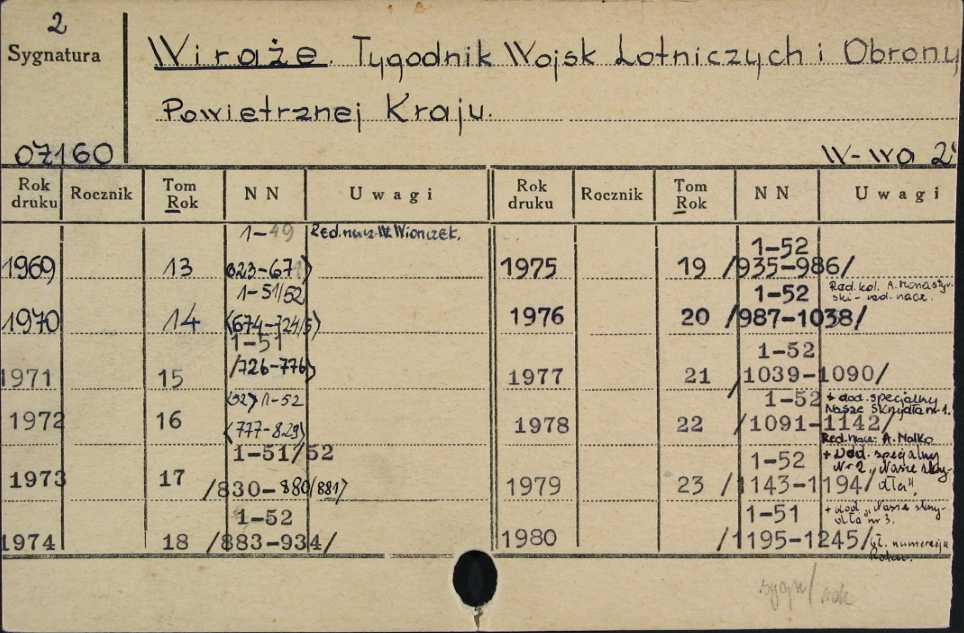 2
Sygnatura
Wiraże. Tygodnik Wojsk Lotniczych i Obrony
Powietrznej Kraju.
07160
W-wa 2°
Rok druku Rocznik Tom Rok N N Uwagi Rok druku Rocznik Tom Rok N N Uwagi
1-49 Red. nacz. W. Wionczek.
1969 13 (623-671)
1-51/52
1970 14 (674-724/5)
1-51
/726-776)
1971 15
(52) 1-52
1972 16 (777-829)
1-51/52
1973 17 /830-880/881)
1-52
1974 18 /883-934/
1-52
1975 19 /935-986/
1-52 Red. kol. A. Monastyr-
ski - red. nacz.
1976 20 /987-1038/
1-52
1977 21 /1039-1090/
1-52 + dod. specjalny
Nasze Skrzydła nr 1.
1978 22 /1091-1142/
Red. nacz. A. Malko
1-52 + Dod. specjalny
Nr 2 „Nasze skrzy-
1979 23 /1143-1194/ dła".
1-51 + dod. „Nasze skrzy-
dła nr 3.
1980 /1195-1245/ numeracja
sygn/ rok